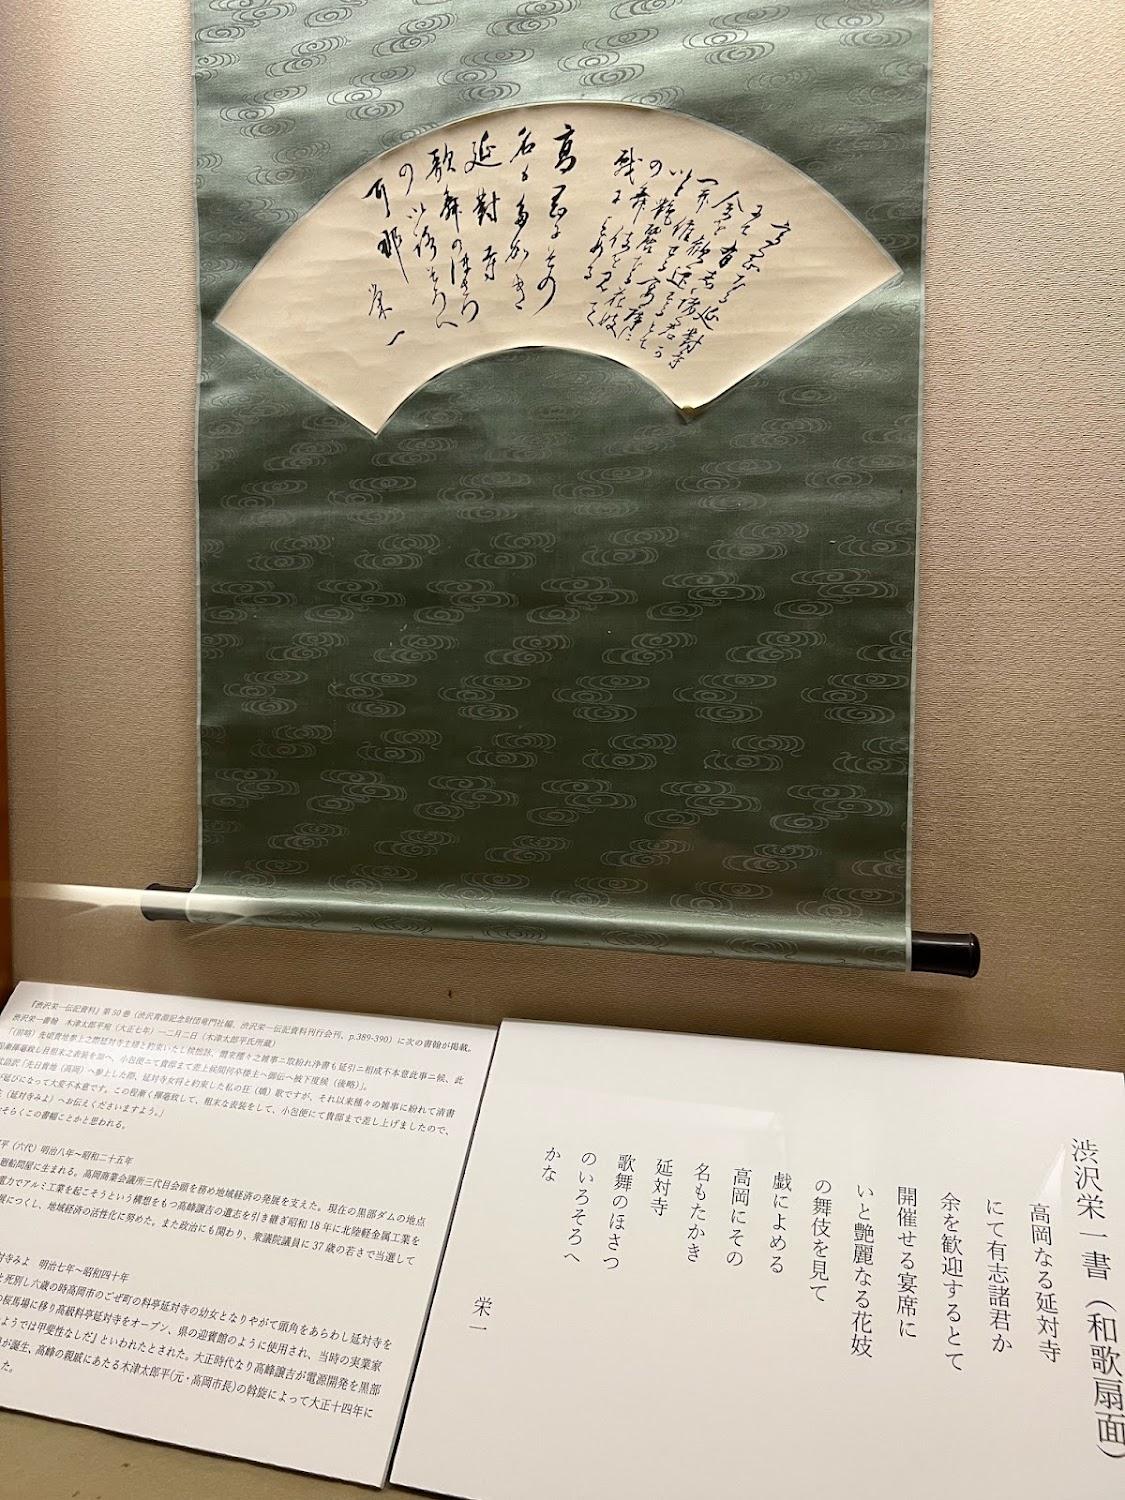 渋沢栄一書（和歌扇面）
高岡なる延対寺
にて有志諸君か
余を歓迎するとて
開催せる宴席に
いと艶麗なる花妓
の舞伎を見て
戯によめる
高岡にその
名もたかき
延対寺
歌舞のほさつ
のいろそろへ
かな
栄一
『渋沢栄一伝記資料』第50巻（渋沢青淵記念財団竜門社編、渋沢栄一伝記資料刊行会刊、p.389-390）に次の書翰が掲載。
渋沢栄一書翰　木津太郎平宛（大正七年）一二月二日（木津太郎平氏所蔵）
「（前略）先頃貴地参上之際延対寺主婦と約束いたし候拙詠、爾来種々之雑事ニ取紛れ浄書も延引ニ相成不本意此事ニ候、此
揮毫致し且粗末之表装を加へ、小包便ニて貴邸まて差上候間何卒楼主へ御伝へ被下度候（後略）」。
訳「先日貴地（高岡）へ参上した際、延対寺女将と約束した私の狂（嬌）歌ですが、それ以来種々の雑事に紛れて清書
が延びになって大変不本意です。この程漸く揮毫致して、粗末な表装をして、小包便にて貴邸まで差し上げましたので、
（延対寺みよ）へお伝えくださいますよう。」
そらくこの書幅ことかと思われる。
平（六代）明治八年～昭和二十五年
廻船問屋に生まれる。高岡商業会議所三代目会頭を務め地域経済の発展を支えた。現在の黒部ダムの地点
電力でアルミ工業を起こそうという構想をもつ高峰譲吉の遺志を引き継ぎ昭和18年に北陸軽金属工業を
展につくし、地域経済の活性化に努めた。また政治にも関わり、衆議院議員に37歳の若さで当選して
対寺みよ　明治七年～昭和四十年
と死別し六歳の時高岡市のごぜ町の料亭延対寺の幼女となりやがて頭角をあらわし延対寺を
の桜馬場に移り高級料亭延対寺をオープン、県の迎賓館のように使用され、当時の実業家
ようでは甲斐性なしだ』といわれたとされた。大正時代なり高峰譲吉が電源開発を黒部
が誕生、高峰の親戚にあたる木津太郎平(元・高岡市長)の斡旋によって大正十四年に
た。